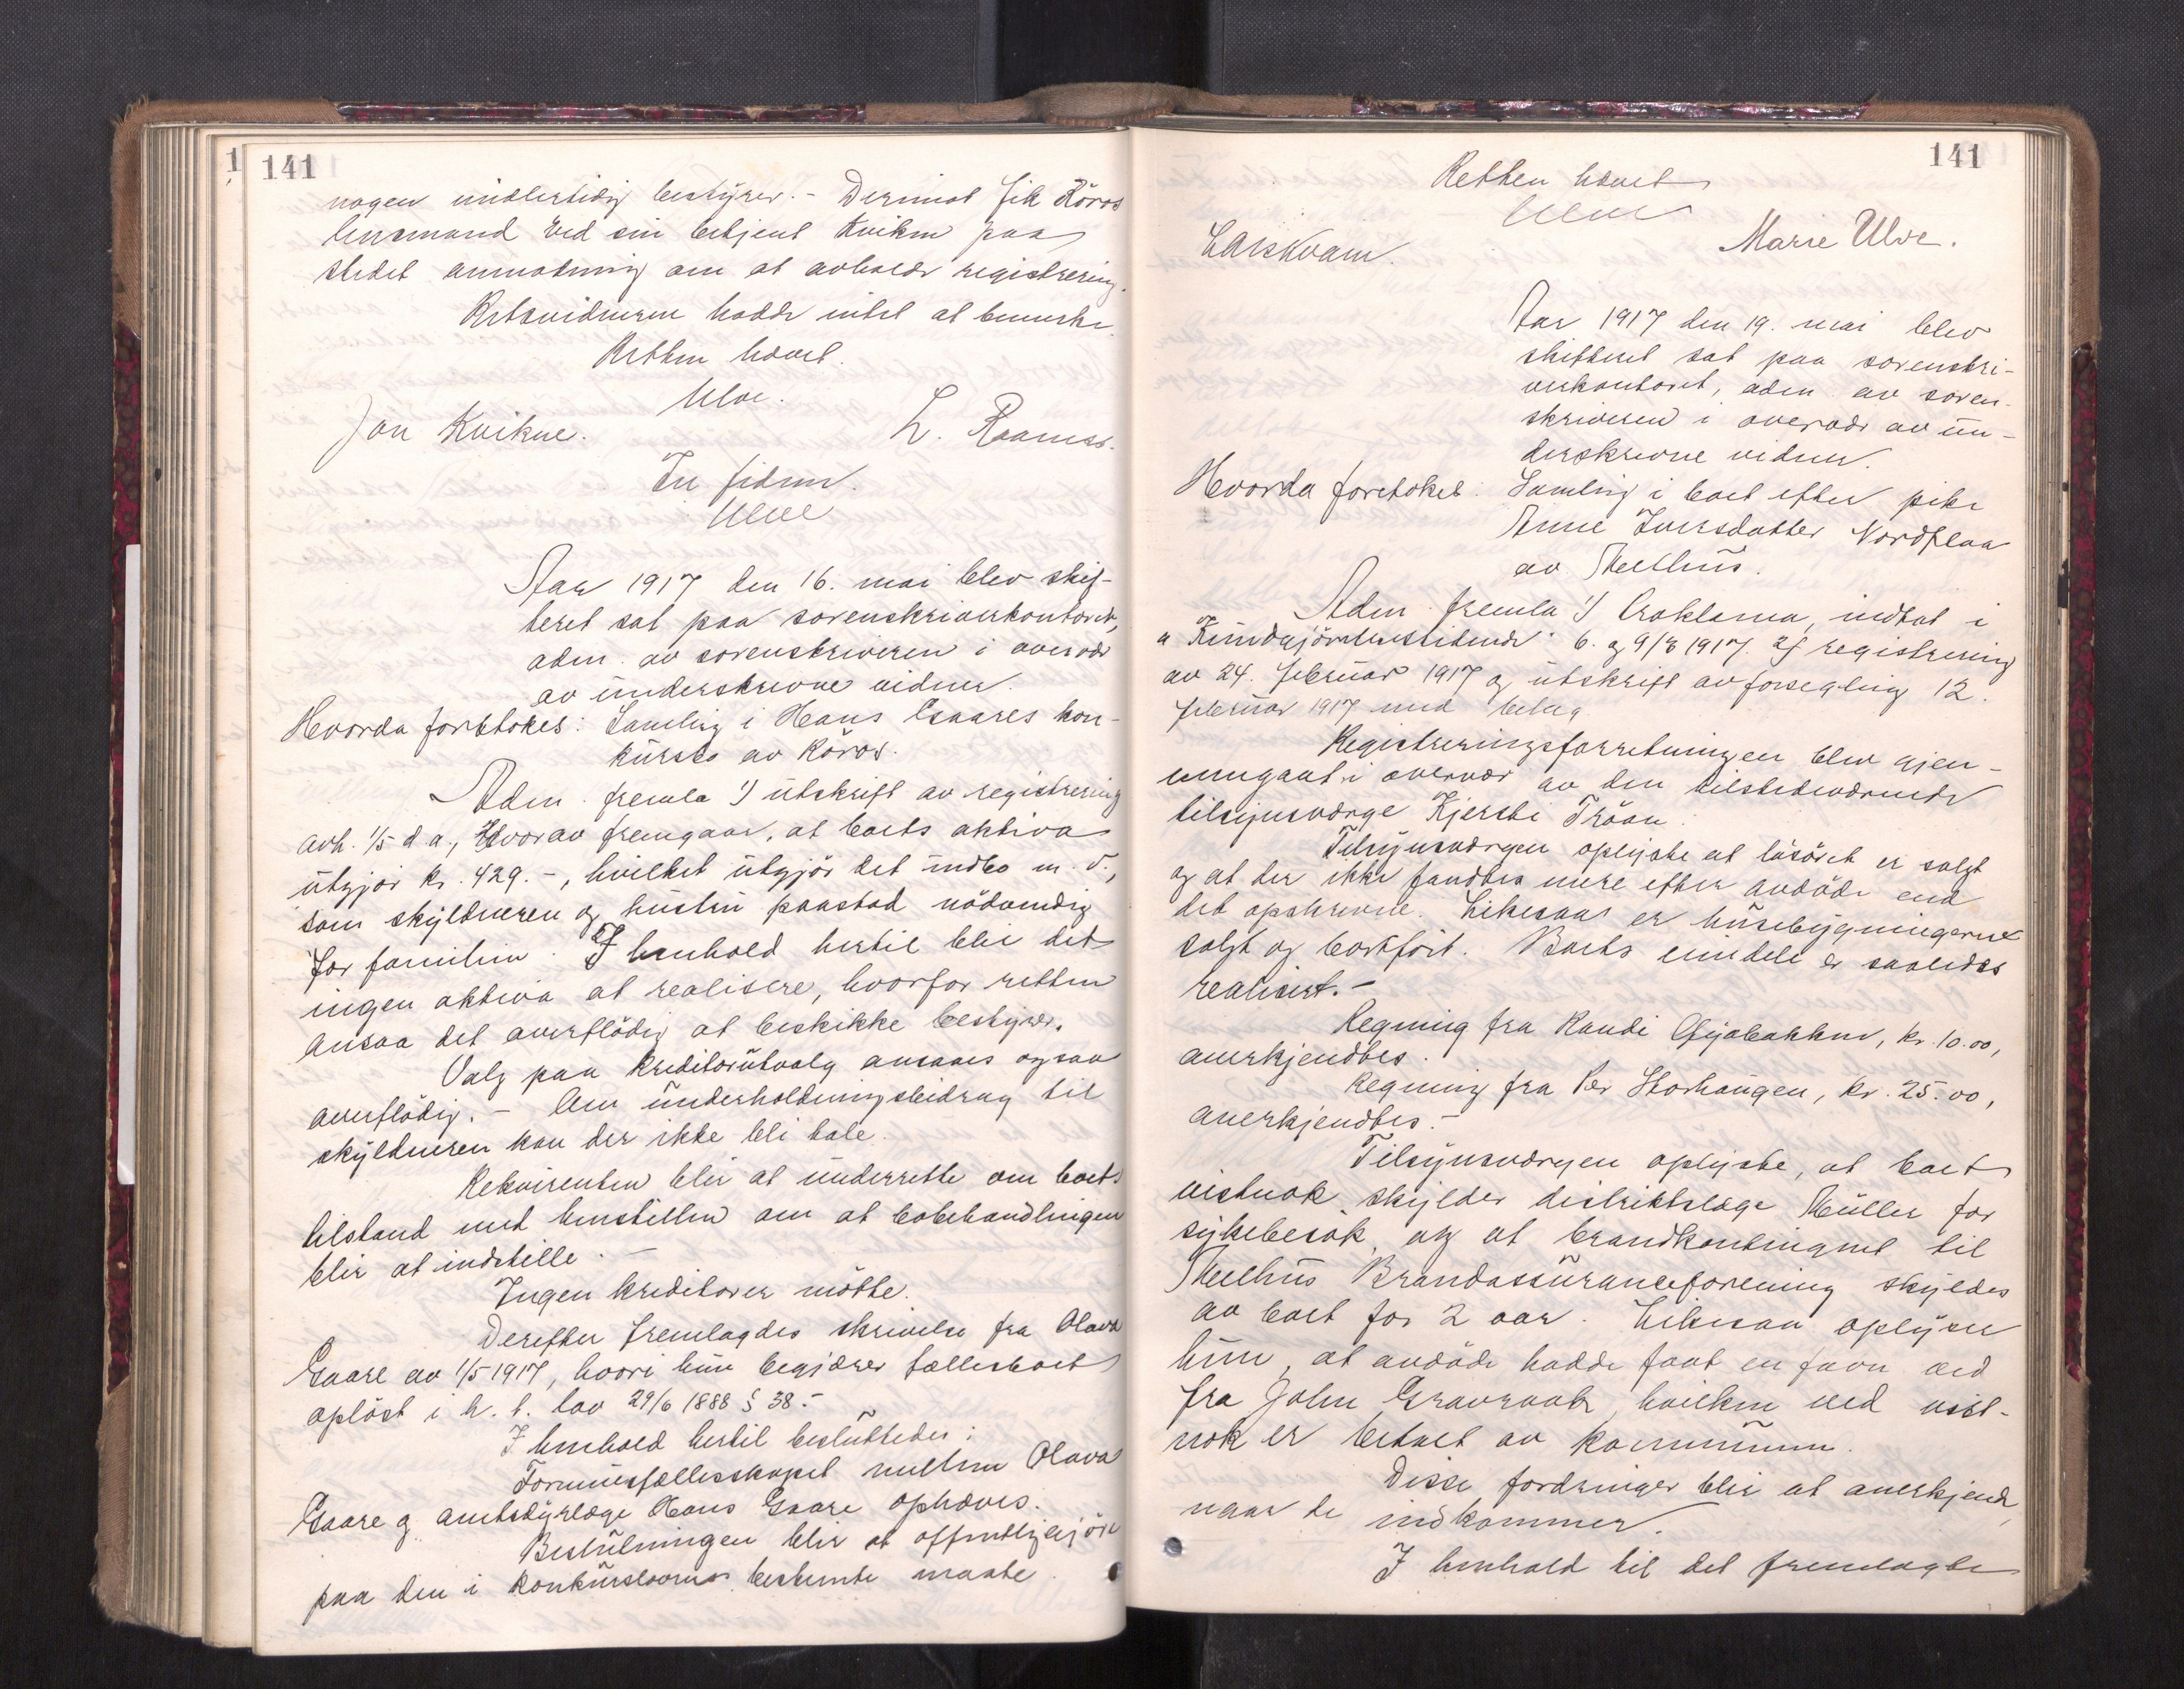 141
nogen midlertidig bestyrer. - Derimot fik Röros
lensmand ved sin betjent Kvikne paa
stedet anmodning om at avholde registrering.
Retsvidnerne hadde intet at bemerke.
Retten hævet.
Ulve.
Jon Kvikne. L. Raamss.
In fidem.
Ulve
Aar 1917 den 16. mai blev skif-
teret sat paa sorenskriverkontoret,
adm. av sorenskriveren i overvær
av underskrevne vidner.
Hvorda foretokes: Samling i Hans Gaares kon-
kursbo av Röros.
Adm. fremla 1) utskrift av registrering
avh. 1/5 d. a., hvorav fremgaar, at boets aktiva
utgjör kr. 429.-, hvilket utgjör det indbo m. v.,
som skyldneren og hustru paastod nödvendig
for familien. I henhold hertil blir det
ingen aktiva at realisere, hvorfor retten
ansaa det overflödig at beskikke bestyrer.
Valg paa kreditorutvalg ansaaes ogsaa
overflödig. - Om underholdningsbidrag til
skyldneren kan der ikke bli tale.
Rekvirenten blir at underrette om boets
tilstand med henstillen om at bobehandlingen
blir at indstille. -
Ingen kreditorer mötte.
Derefter fremlagdes skrivelse fra Olava
Gaare av 1/5 1917, hvori hun begjærer fællesboet
oplöst i h. t. lov 29/6 1888 § 38.-
I henhold hertil besluttedes:
Formuesfællesskapet mellem Olava
Gaare og amtsdyrlæge Hans Gaare ophæves.
Beslutningen blir at offentliggjöre
paa den i konkursloven bestemte maate.
141
Retten hævet
Ulve
Lars Kvam. Marie Ulve.
Aar 1917 den 19. mai blev
skifteret sat paa sorenskri-
verkontoret, adm. av soren-
skriveren i overvær av un-
derskrevne vidner.
Hvorda foretokes: Samling i boet efter pike
Anne Iversdatter Nordflaa
av Melhus.
Adm. fremla 1) Proklama, indtat i
"Kundgjörelsestidende" 6. og 9/3 1917. 2) registrering
av 24. februar 1917 og utskrift av forsegling 12.
februar 1917 med belæg
Registreringsforretningen blev gjen-
nemgaat i overvær av den tilstedeværende
tilsynsværge Kjersti Tröan.
Tilsynsværgen oplyste at lösöret er solgt
og at der ikke fandtes mere efter avdöde end
det opskrevne. Likesaa er husebygningerne
solgt og bortfört. Boets eiendele er saaledes
realisert. -
Regning fra Randi Gyabakken, kr. 10.00,
anerkjendtes.
Regning fra Per Storhaugen, kr. 25.00,
anerkjendtes. -
Tilsynsværgen oplyste, at boet
vistnok skylder distriktslæge Müller for
sykebesök, og at brandkontingent til
Melhus Brandassuranceforening skyldes
av boet for 2 aar. Likesaa oplyser
hun, at avdöde hadde faat en favn ved
fra John Gravraak, hvilken ved vist-
nok er betalt av kommunen.
Disse fordringer blir at anerkjende,
naar de indkommer.
I henhold til det fremlagte